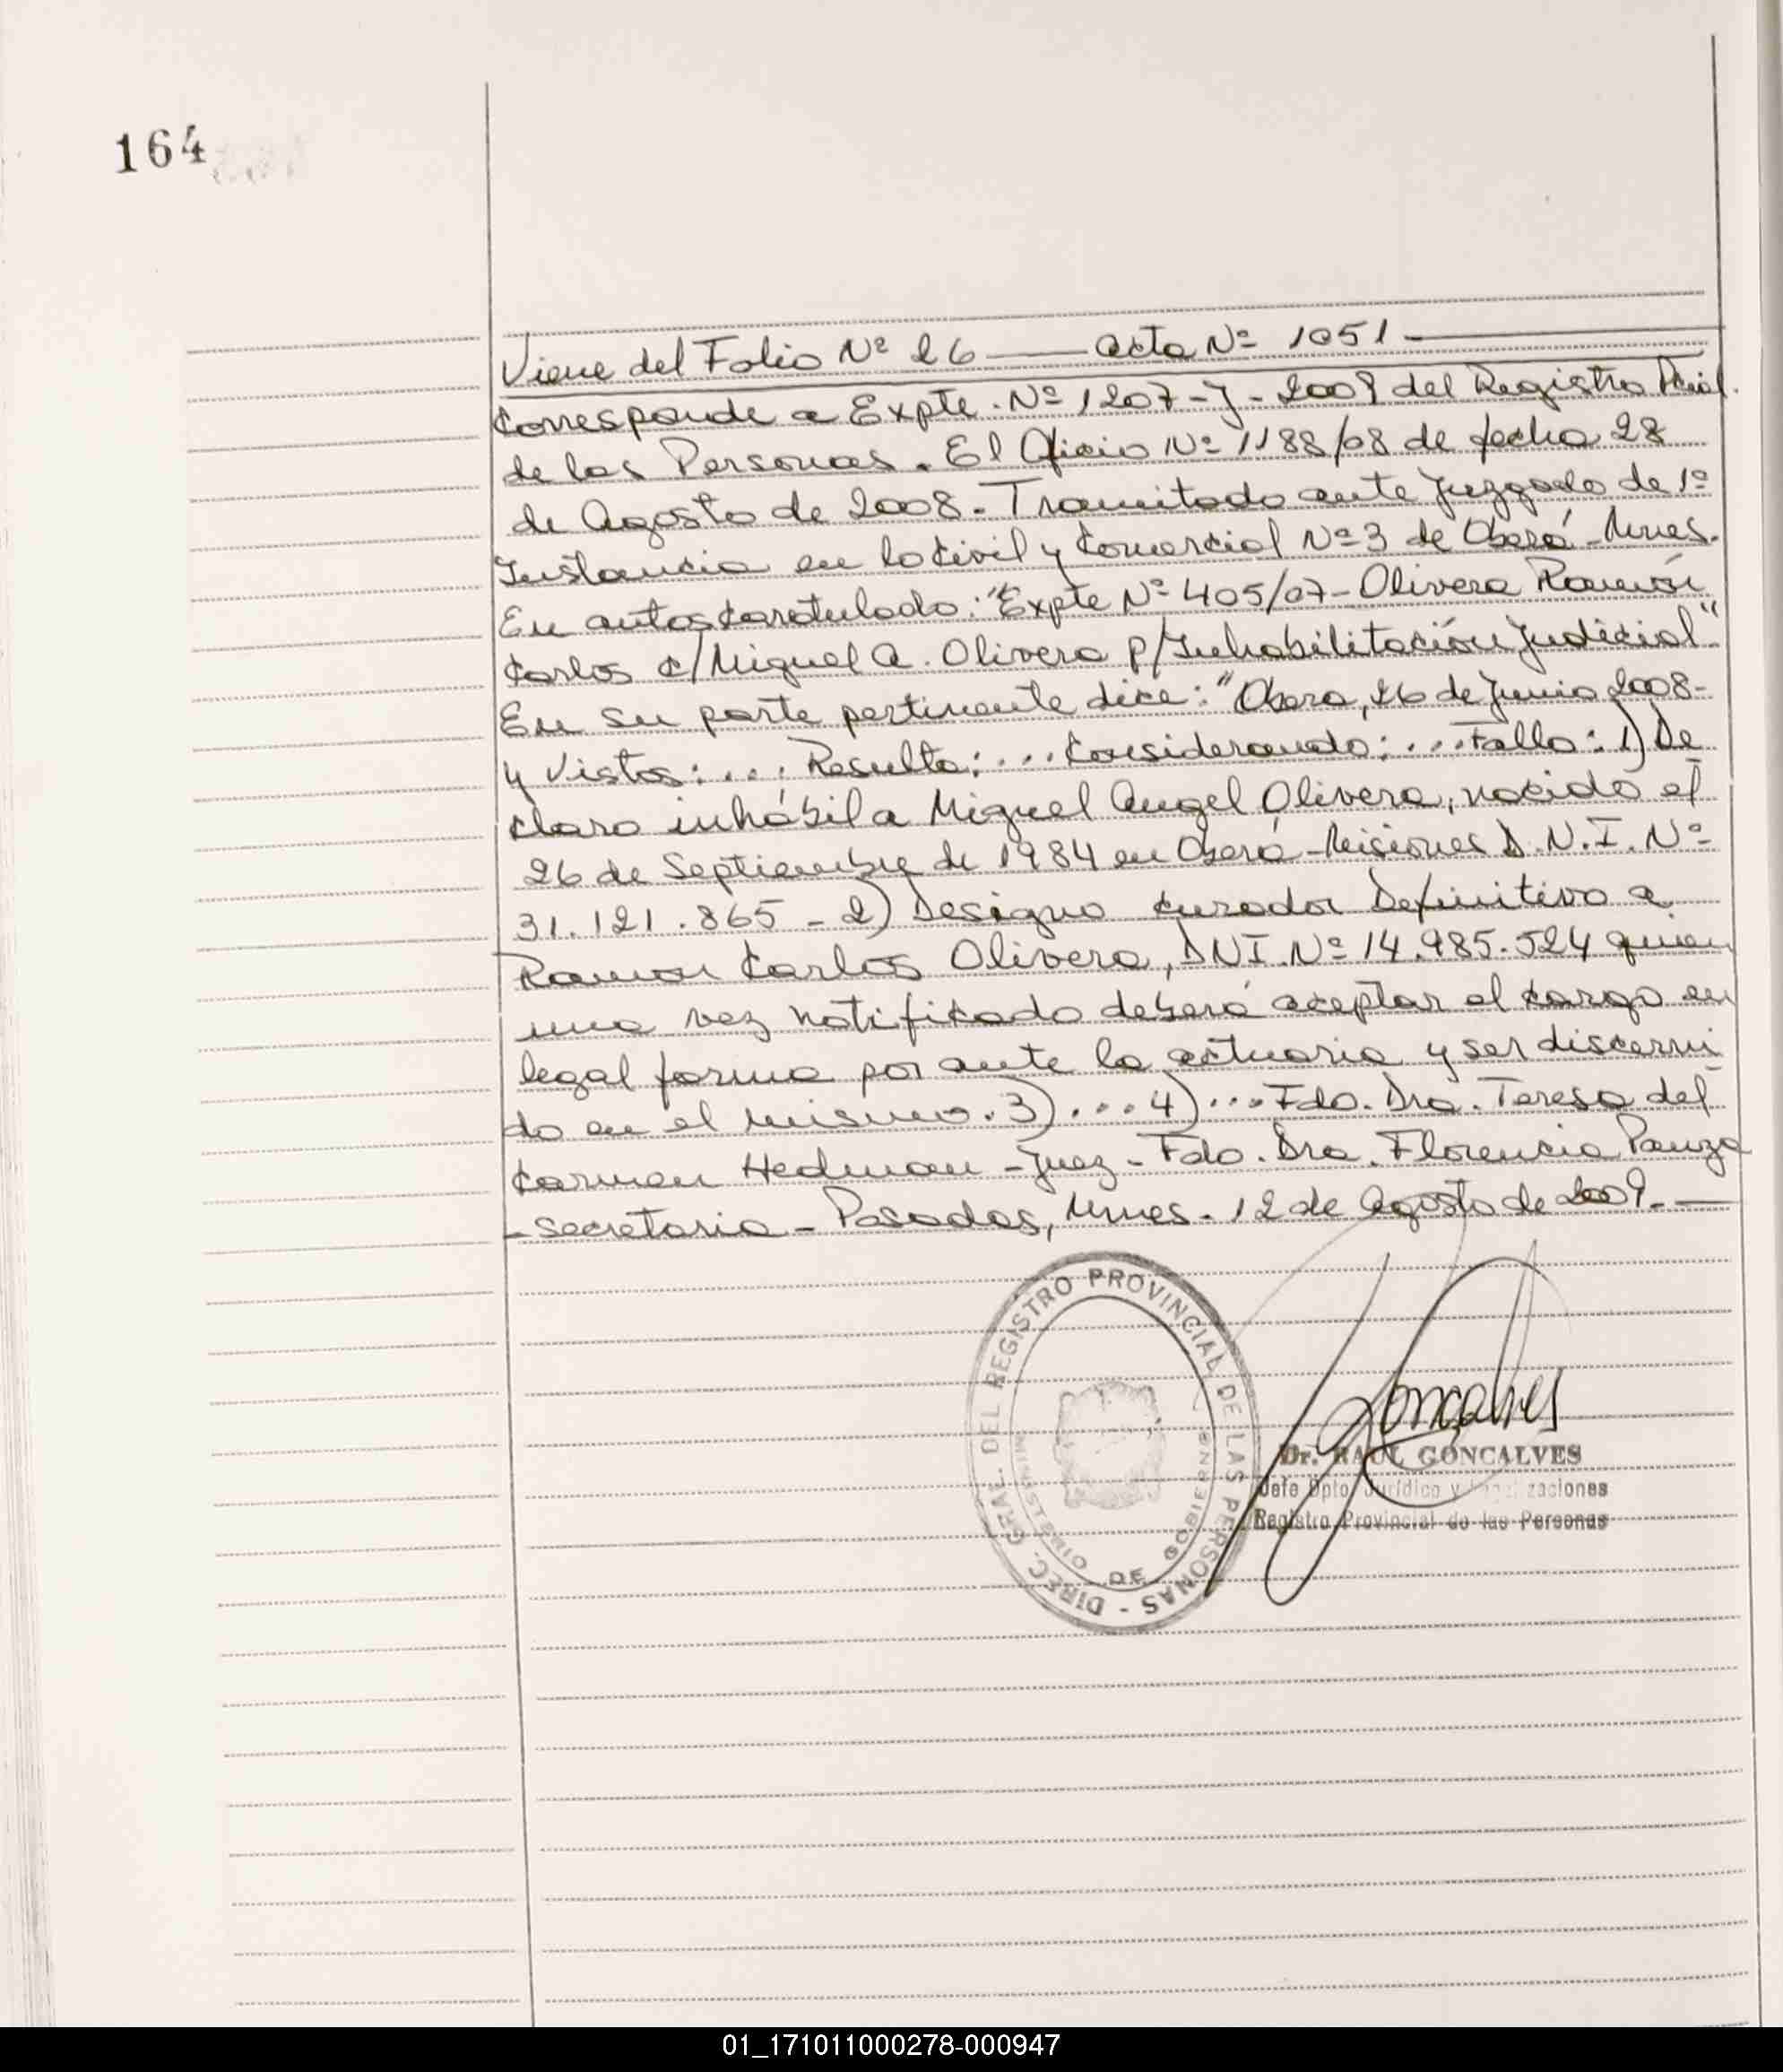 164
Viene del Folio Nº 26 — Acta Nº 1051 —
Corresponde a Expte. Nº 1207-J-2009 del Registro Pcial.
de las Personas. El Oficio Nº 1188/08 de fecha 28
de Agosto de 2008. Tramitado ante Juzgado de 1º
Instancia en lo Civil y Comercial Nº 3 de Oberá-Mnes.
En autos Caratulado: "Expte Nº 405/07-Olivera Ramón
Carlos c/Miguel A. Olivera p/Inhabilitación Judicial"
En su parte pertinente dice: "Obera, 26 de Junio 2008-
y Vistos: ... Resulta: ... Considerando: ... Fallo: 1) De
claro inhábil a Miguel Angel Olivera, nacido el
26 de Septiembre de 1984 en Oberá-Misiones D.N.I. Nº
31.121.865 - 2) Designo Curador Definitivo a
Ramon Carlos Olivera, DNI. Nº 14.985.524 quien
una vez notificado deberá aceptar el cargo en
legal forma por ante la actuaria y ser discerni
do en el mismo. 3) ... 4) ... Fdo. Dra. Teresa del
Carmen Hedman - Juez - Fdo. Dra. Florencia Panza
- Secretaria - Posadas, Mnes. 12 de Agosto de 2009. —
DIREC. GRAL. DEL REGISTRO PROVINCIAL DE LAS PERSONAS -
MINISTERIO DE GOBIERNO
Goncalves
Dr. RAUL GONCALVES
Jefe Dpto. Jurídico y
Registro Provincial de las Personas
01_171011000278-000947